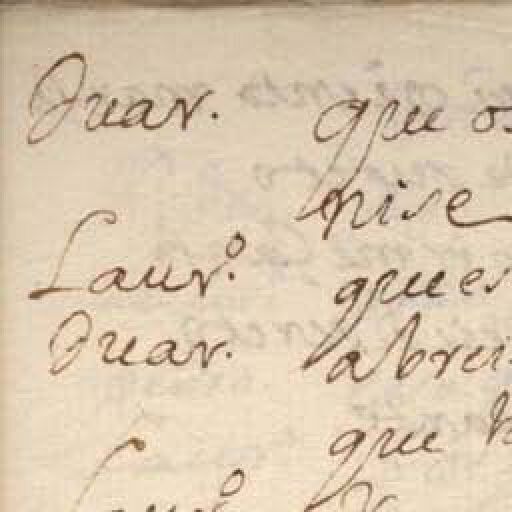 Duar. que os
nise
Laur.º ques
Duar. abrei
que
Laur.º